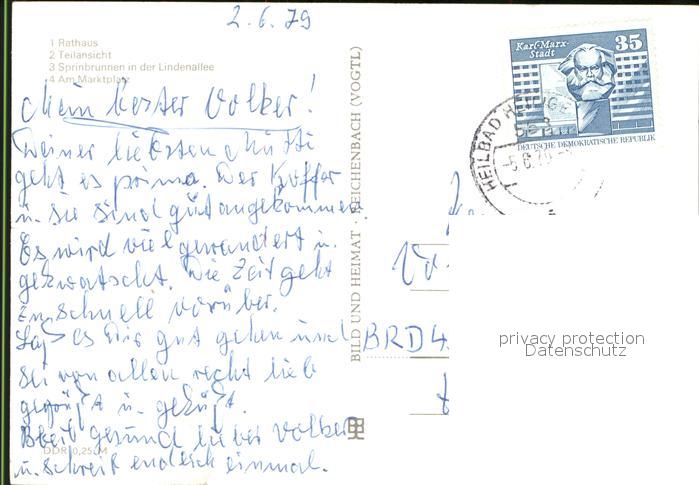 2.6.79
1 Rathaus
2 Teilansicht
3 Sprinbrunnen in der Lindenallee
4 Am Marktplatz
Mein bester Volker!
Deiner liebsten Mutti
geht es prima. Der Koffer
u. sie sind gut angekommen.
Es wird viel gewandert u.
gekwatscht. Die Zeit geht
zu schnell vorüber.
Laß es Dir gut gehen und
sei von allen recht lieb
gegrüßt u. geküßt.
Bleib gesund lieber Volker
u. schreib endlich einmal.
DDR 0,25 M
BILD UND HEIMAT · REICHENBACH (VOGTL)
Karl-Marx-
Stadt
35
DEUTSCHE DEMOKRATISCHE REPUBLIK
HEILBAD HEILIGE
-5.6.79
BRD 4
privacy protection
Datenschutz